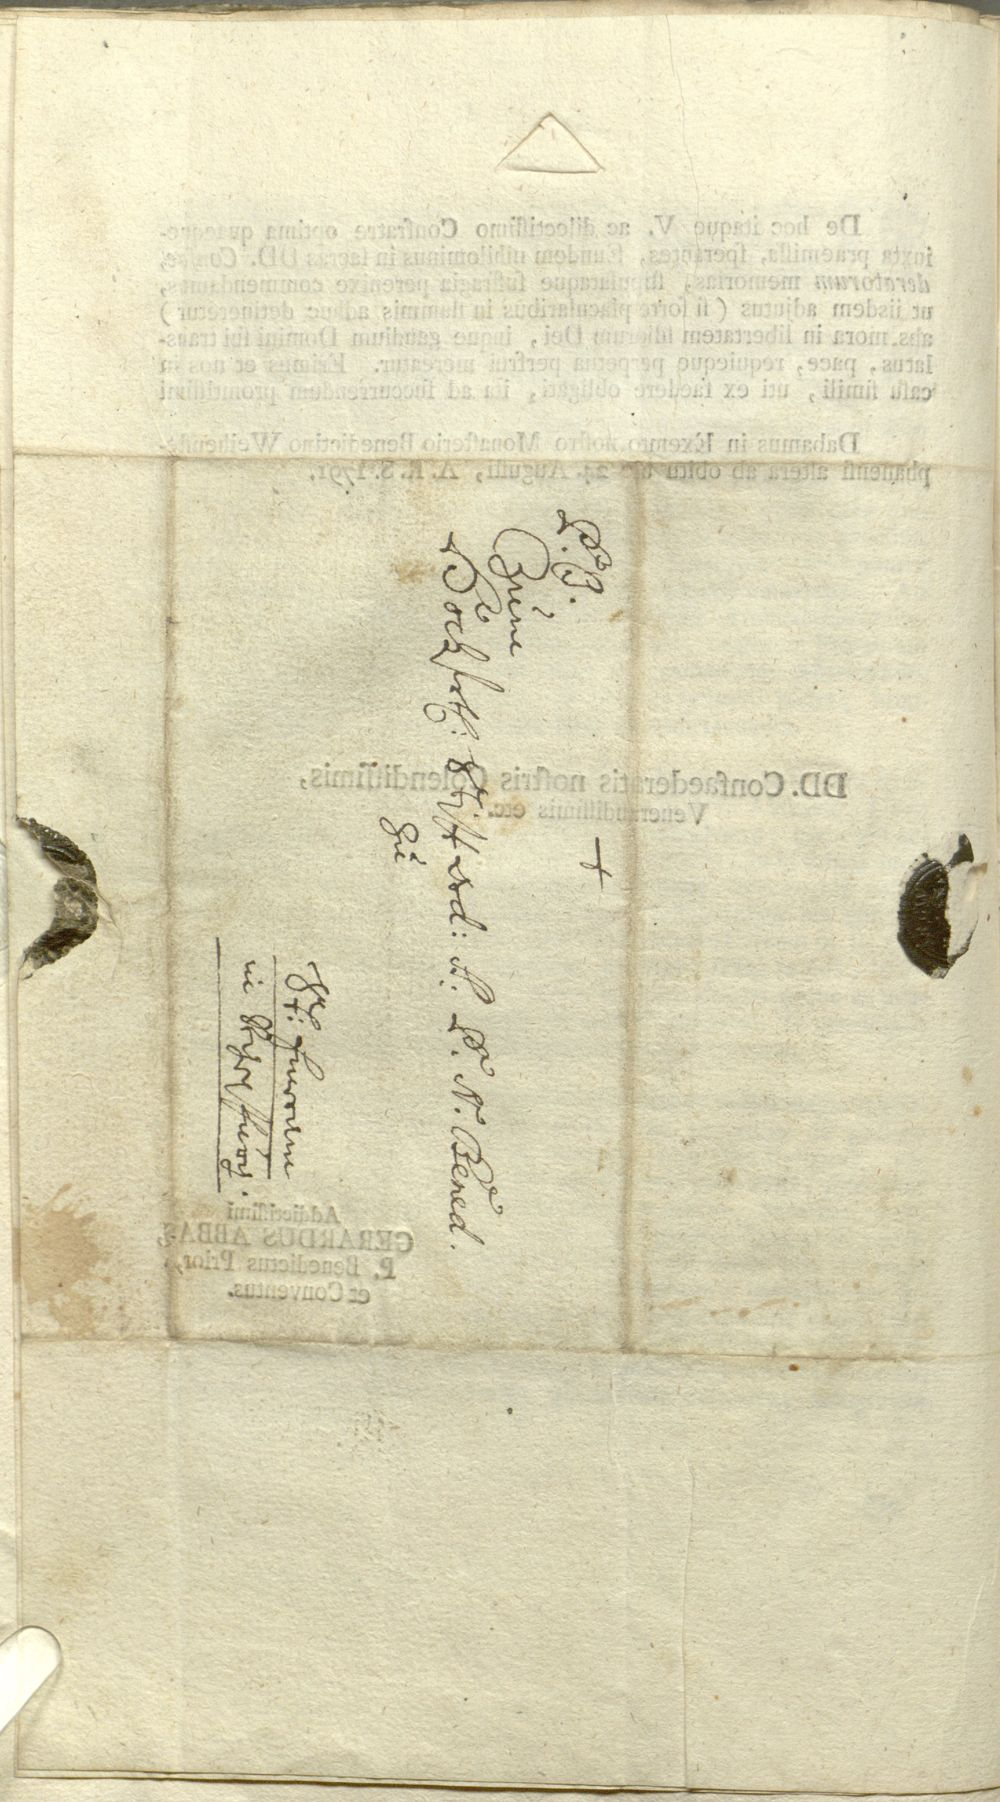 De hoc itaque V. ac dilectiſſimo Confratre optima quaeque
juxta praemiſſa, ſperantes, Eundem nihilominus in ſacras DD.
deratorum memorias, ſtipulataque ſuffragia perenixe commendamus,
ut iisdem adjutus ( ſi forte piacularibus in flammis adhuc detineretur )
abs mora in libertatem filiorum Dei, inque gaudium Domini ſui trans-
latus, pace, requieque perpetua perfrui mereatur. Erimus et nos in
caſu ſimili, uti ex faedere obligati, ita ad ſuccurrendum promtiſſimi
Dabamus in Exemto noſtro Monaſterio Benedictino Weihenſte-
phanenſi altera ab obitu die 24. Auguſti, A. R. S. 1791.
DD. Confaederatis noſtris Colendiſſimis,
Venerandiſſimis etc.
Addictiſſimi
GERARDUS ABBAS,
P. Benedictus Prior,
et Conventus.
Stift ord: S. P. N. Bened.
zu